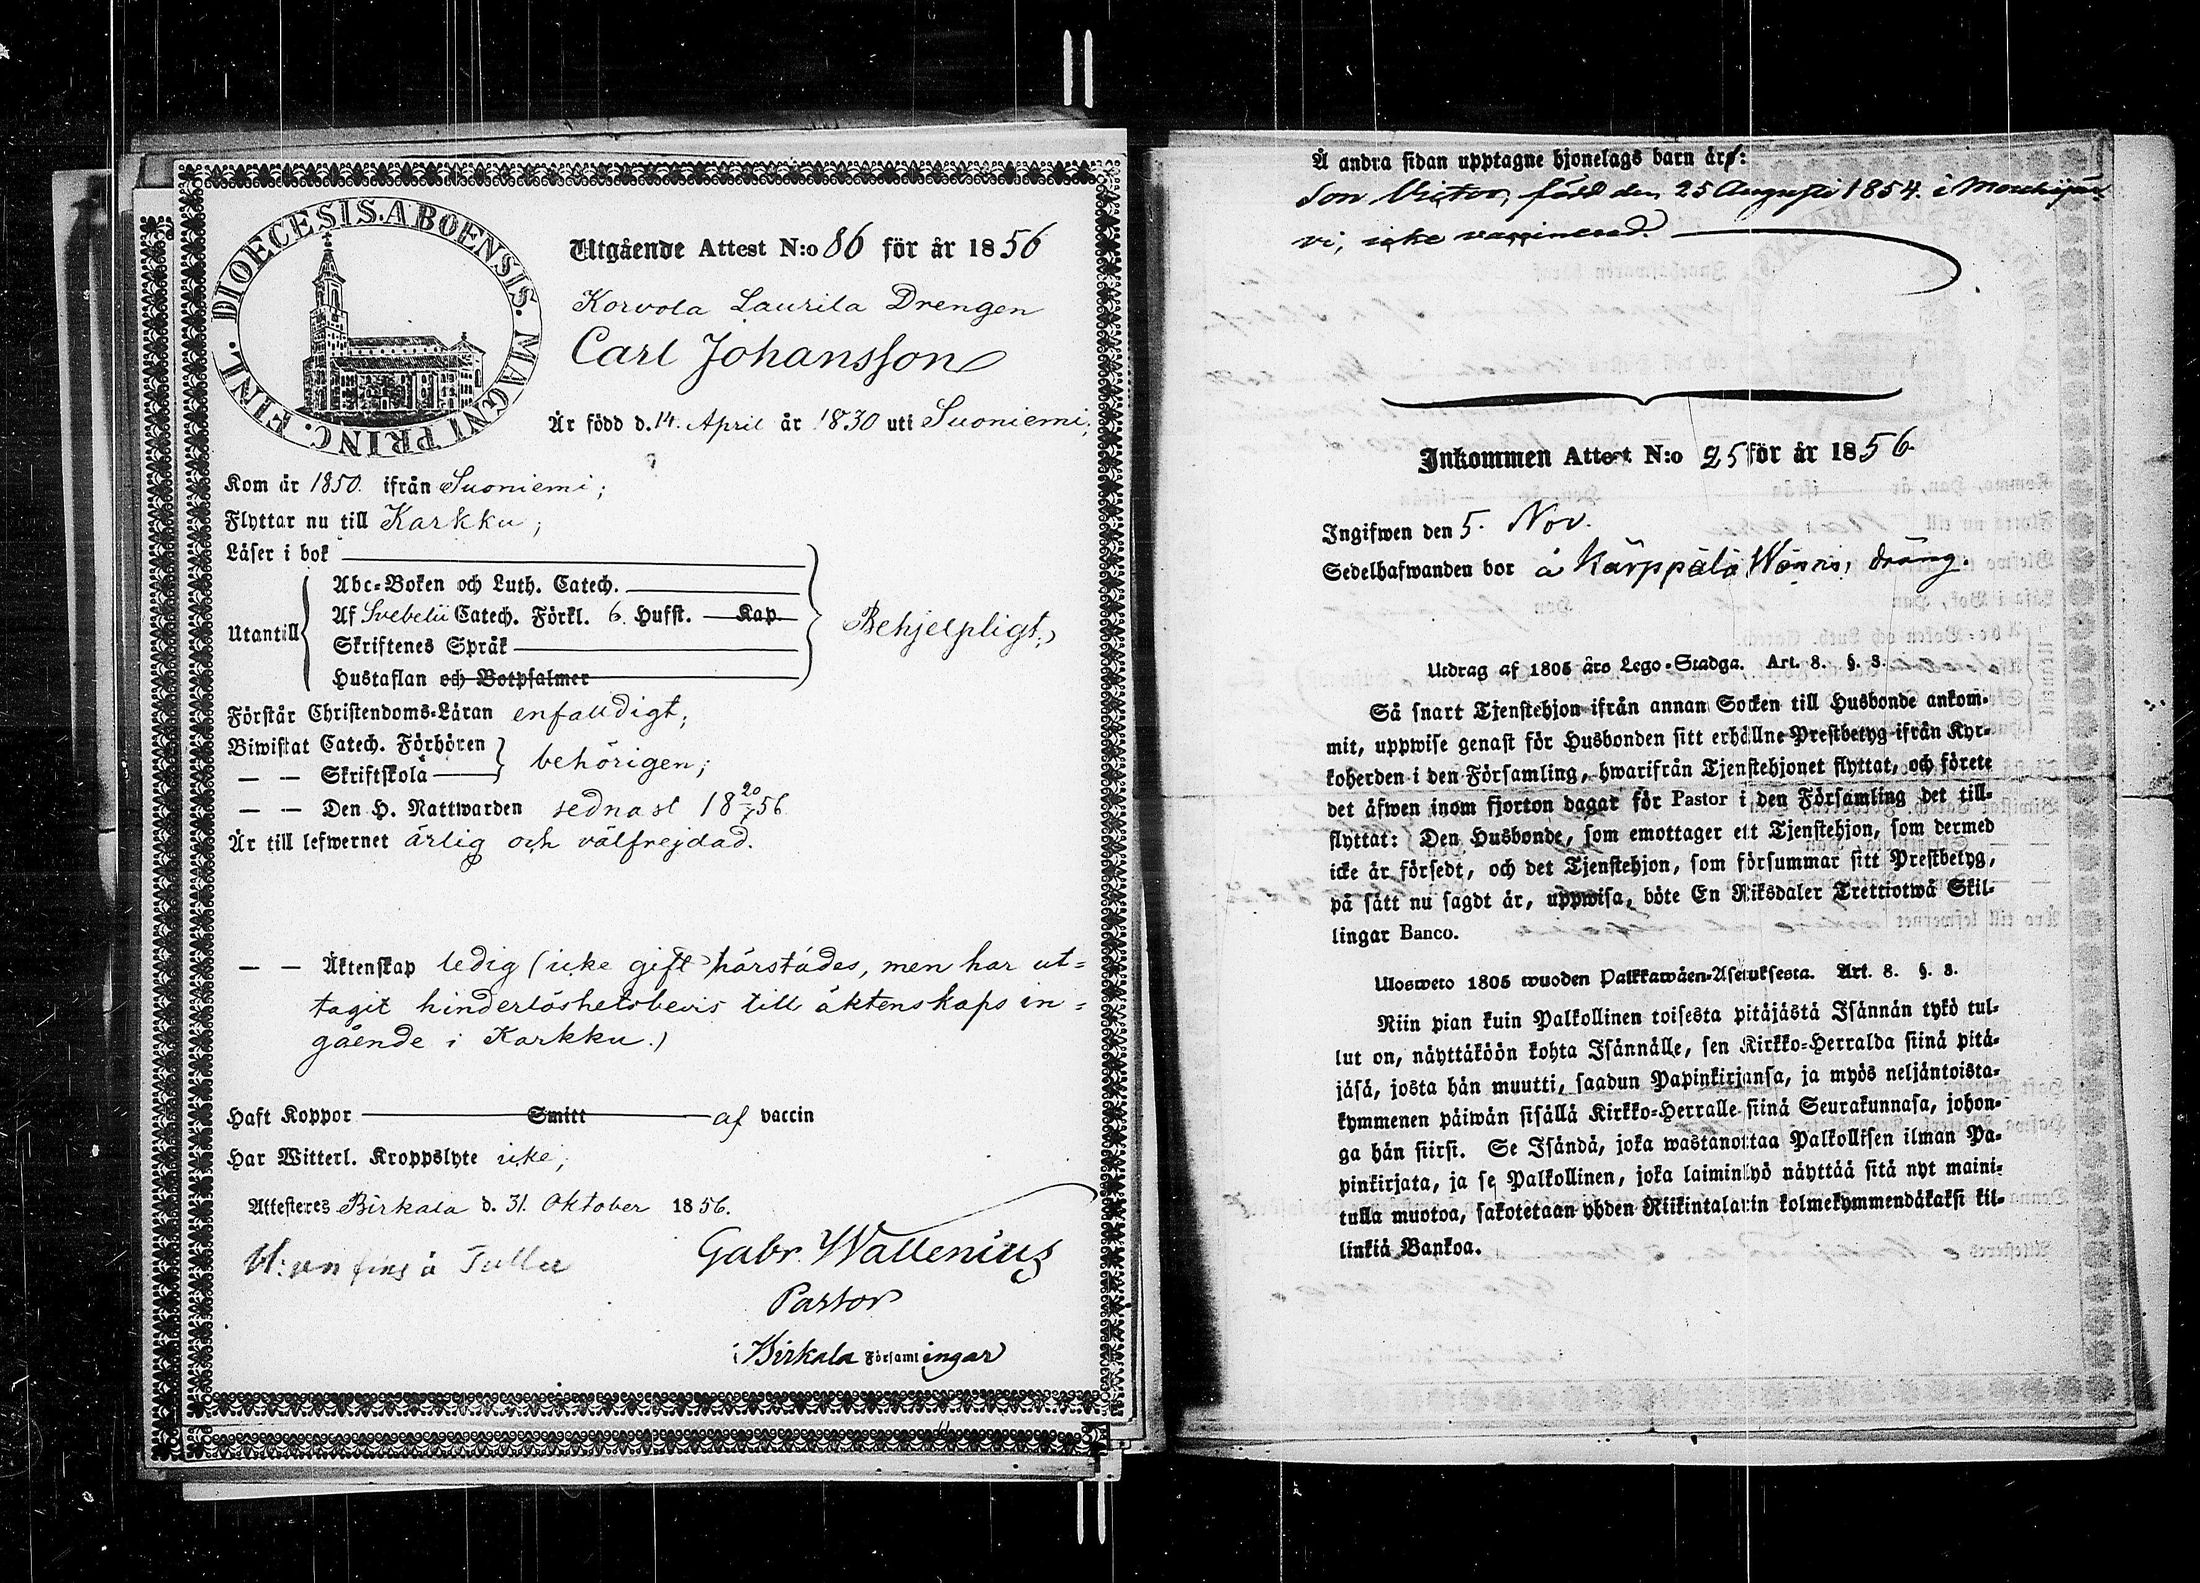 DIOECESIS. ABOENSIS. MAGNI PRINC. FINL.
Utgående Attest N:o 86 för år 1856
Korvola Laurila Drengen
Carl Johansson
Är född d. 14. April år 1830 uti Suoniemi;
Kom år 1850. ifrån Suoniemi;
Flyttar nu till Karkku;
Läser i bok
Abc-Boken och Luth. Catech.
Utantill Af Svebelii Catech. Förkl. 6 Hufst. Kap. Behjelpligt;
Skriftenes Språk
Hustaflan och Botpsalmer
Förstår Christendoms-Läran enfaldigt;
Biwistat Catech. Förhören
— — Skriftskola behörigen;
— — Den H. Nattwarden sednast 18 20/7 56.
Är till lefwernet ärlig och välfrejdad.
— — Äktenskap ledig (icke gift härstädes, men har ut=
tagit hinderlöshetsbevis till äktenskaps in=
gående i Karkku.)
Haft Koppor Smitt af vaccin
Har Witterl. Kroppslyte icke;
Attesteres Birkala d. 31. Oktober 1856.
Gabr. Wallenius
Pastor
i Birkala Församlingar
Å andra sidan upptagne hjonelags barn är:
Son Victor, född den 25 Augusti 1854. i Mouhijär-
vi, icke vaccinerad.
Inkommen Attest N:o 25 för år 1856.
Ingifwen den 5. Nov.
Sedelhafwanden bor å Kärppälä Wännis, dräng.
Utdrag af 1805 års Lego-Stadga. Art. 8. §. 3.
Så snart Tjenstehjon ifrån annan Socken till Husbonde ankom-
mit, uppwise genast för Husbonden sitt erhållne Prestbetyg ifrån Kyr-
koherden i den Församling, hwarifrån Tjenstehjonet flyttat, och förete
det äfwen inom fjorton dagar för Pastor i den Församling det till-
flyttat: Den Husbonde, som emottager ett Tjenstehjon, som dermed
icke är försedt, och det Tjenstehjon, som försummar sitt Prestbetyg,
på sätt nu sagdt är, uppwisa, böte En Riksdaler Trettiotwå Skil-
lingar Banco.
Ulosweto 1805 wuoden Palkkawäen-Asetuksesta. Art. 8. §. 3.
Niin pian kuin Palkollinen toisesta pitäjästä Isännän tykö tul-
lut on, näyttäköön kohta Isännälle, sen Kirkko-Herralda siinä pitä-
jäsä, josta hän muutti, saadun Papinkirjansa, ja myös neljäntoista-
kymmenen päiwän sisällä Kirkko-Herralle siinä Seurakunnasa, johon-
ga hän siirsi. Se Isändä, joka wastanottaa Palkollisen ilman Pa-
pinkirjata, ja se Palkollinen, joka laiminlyö näyttää sitä nyt maini-
tulla muotoa, sakotetaan yhden Riikintalarin kolmekymmendäkaksi kil-
linkiä Bankoa.